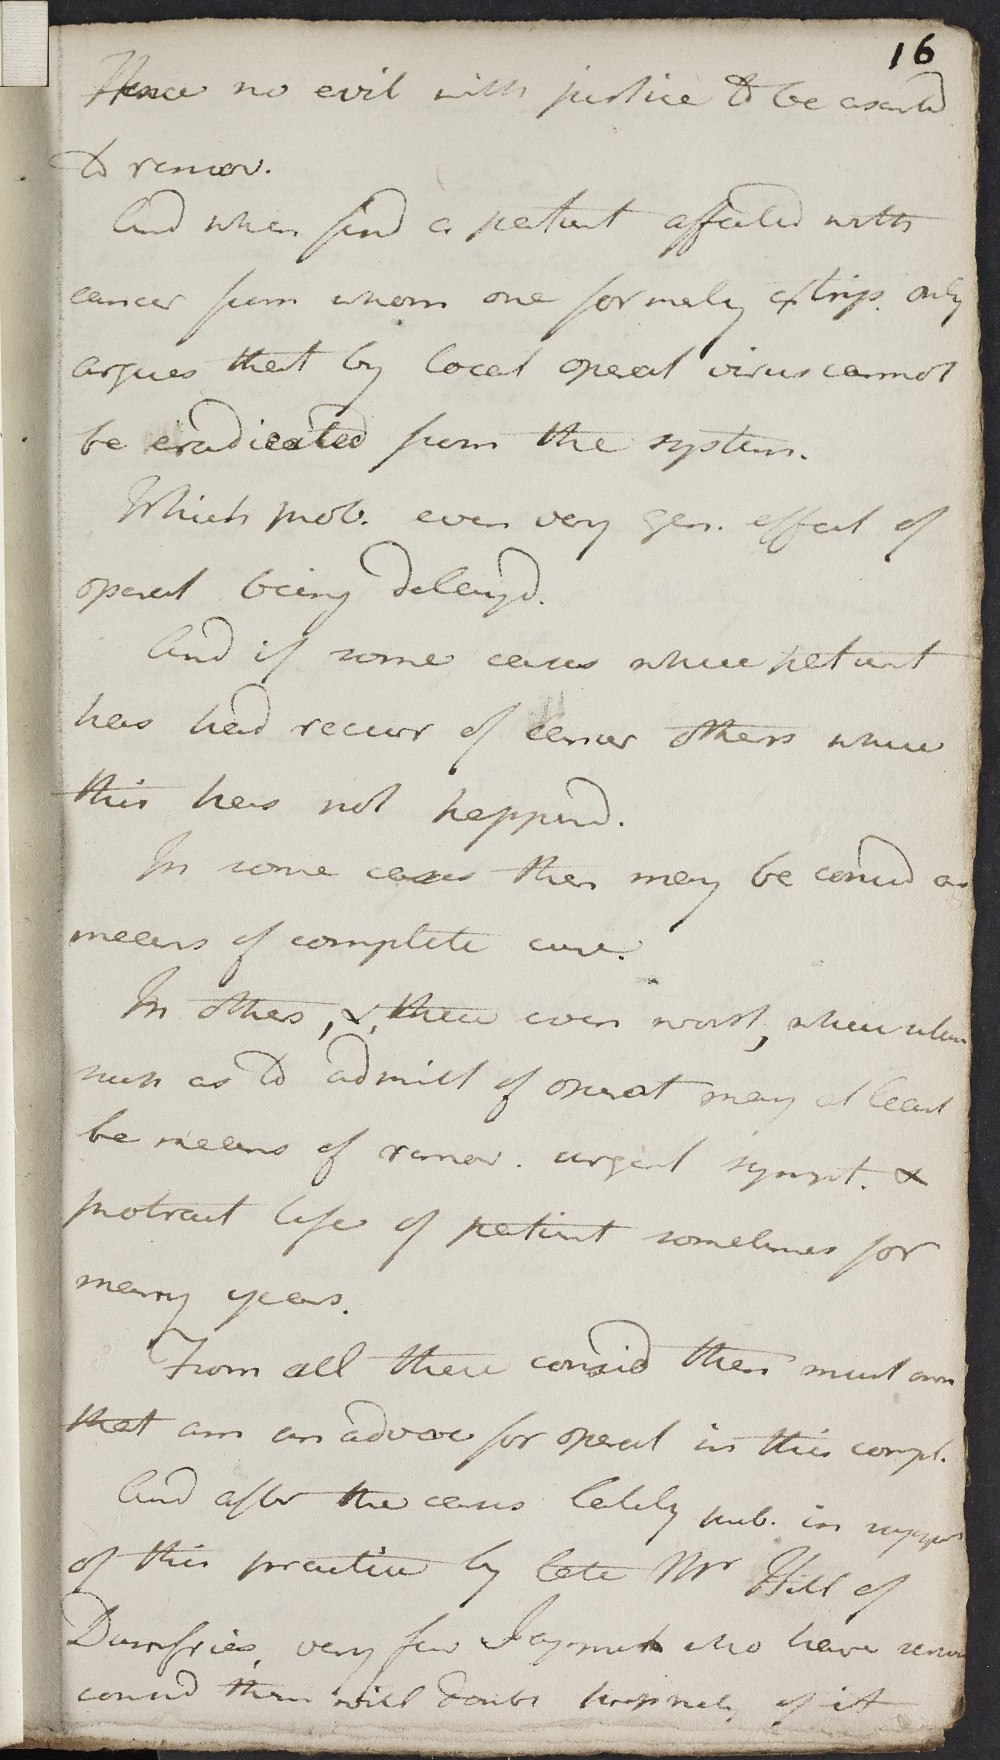 16
Hence no evil with justice to be ascribd
to remov.
And when find a patient affected with
cancer from whom one formerly extirp. only
argues that by local operat virus cannot
be eradicated from the system.
Which prob. even very gen. effect of
operat being delayd.
And if some cases where patient
has had recurr of cancer others where
this has not happend.
In some cases then may be consid as
means of complete cure.
In others, & these even worst, where ulcer
such as to admitt of operat may at least
be means of remov. urgent sympt. &
protract life of patient sometimes for
many years.
From all these consid then must own
that am an advoc for operat in this compl.
And after the cases lately pub. in suppor
of this practice by late Mr Hill of
Dumfries, very few I aymut who have
consid them will doubt propriety of it